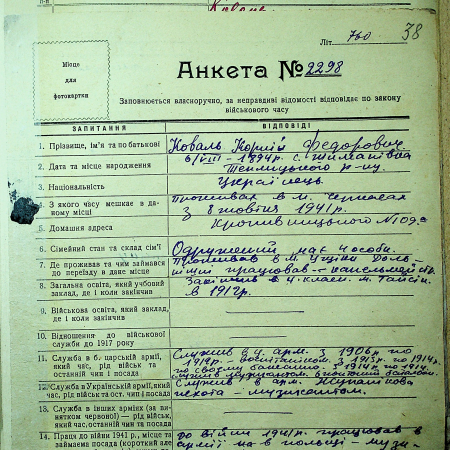 Літ 760 38
Місце
для
фотокартки
Анкета № 2298
Заповнюється власноручно, за неправдиві відомості відповідає по закону
військового часу
ЗАПИТАННЯ ВІДПОВІДІ
1. Прізвище, ім'я та по батькові Коваль Корній Федорович
2. Дата та місце народження 6/VIII – 1894 р. с.
р-ну.
3. Національність Українець.
4. З якого часу мешкає в даному місці Проживав в м. Черкасах
з 8 жовтня 1941 р.
5. Домашня адреса Кропивницького №109а
6. Сімейний стан та склад сім'ї Одружений має 4 особи.
7. Де проживав та чим займався до переїзду в дане місце Проживав в м.
працював – капельмейст.
8. Загальна освіта, який учбовий заклад, де і коли закінчив Закінчив 4 клас. м. Гайсін
в 1912 р.
9. Військова освіта, який заклад, де і коли закінчив
10. Відношення до військової служби до 1917 року
11. Служба в б. царській армії, який час, рід військ та останній чин і посада Служив в ц. арм. з 1906 р. по
1919 р. з 1913 р. по 1914 р.
з 1914 р. по
служив музикантом
12. Служба в Українській армії, який час, рід військ та ост. чин і посада Служив в арм.
піхота – музикантом.
13. Служба в інших арміях (за винятком червоної) — рід військ, який час, останній чин та посада
14. Праця до війни 1941 р., місце та займаєма посада (короткий до війни 1941 р. працював в